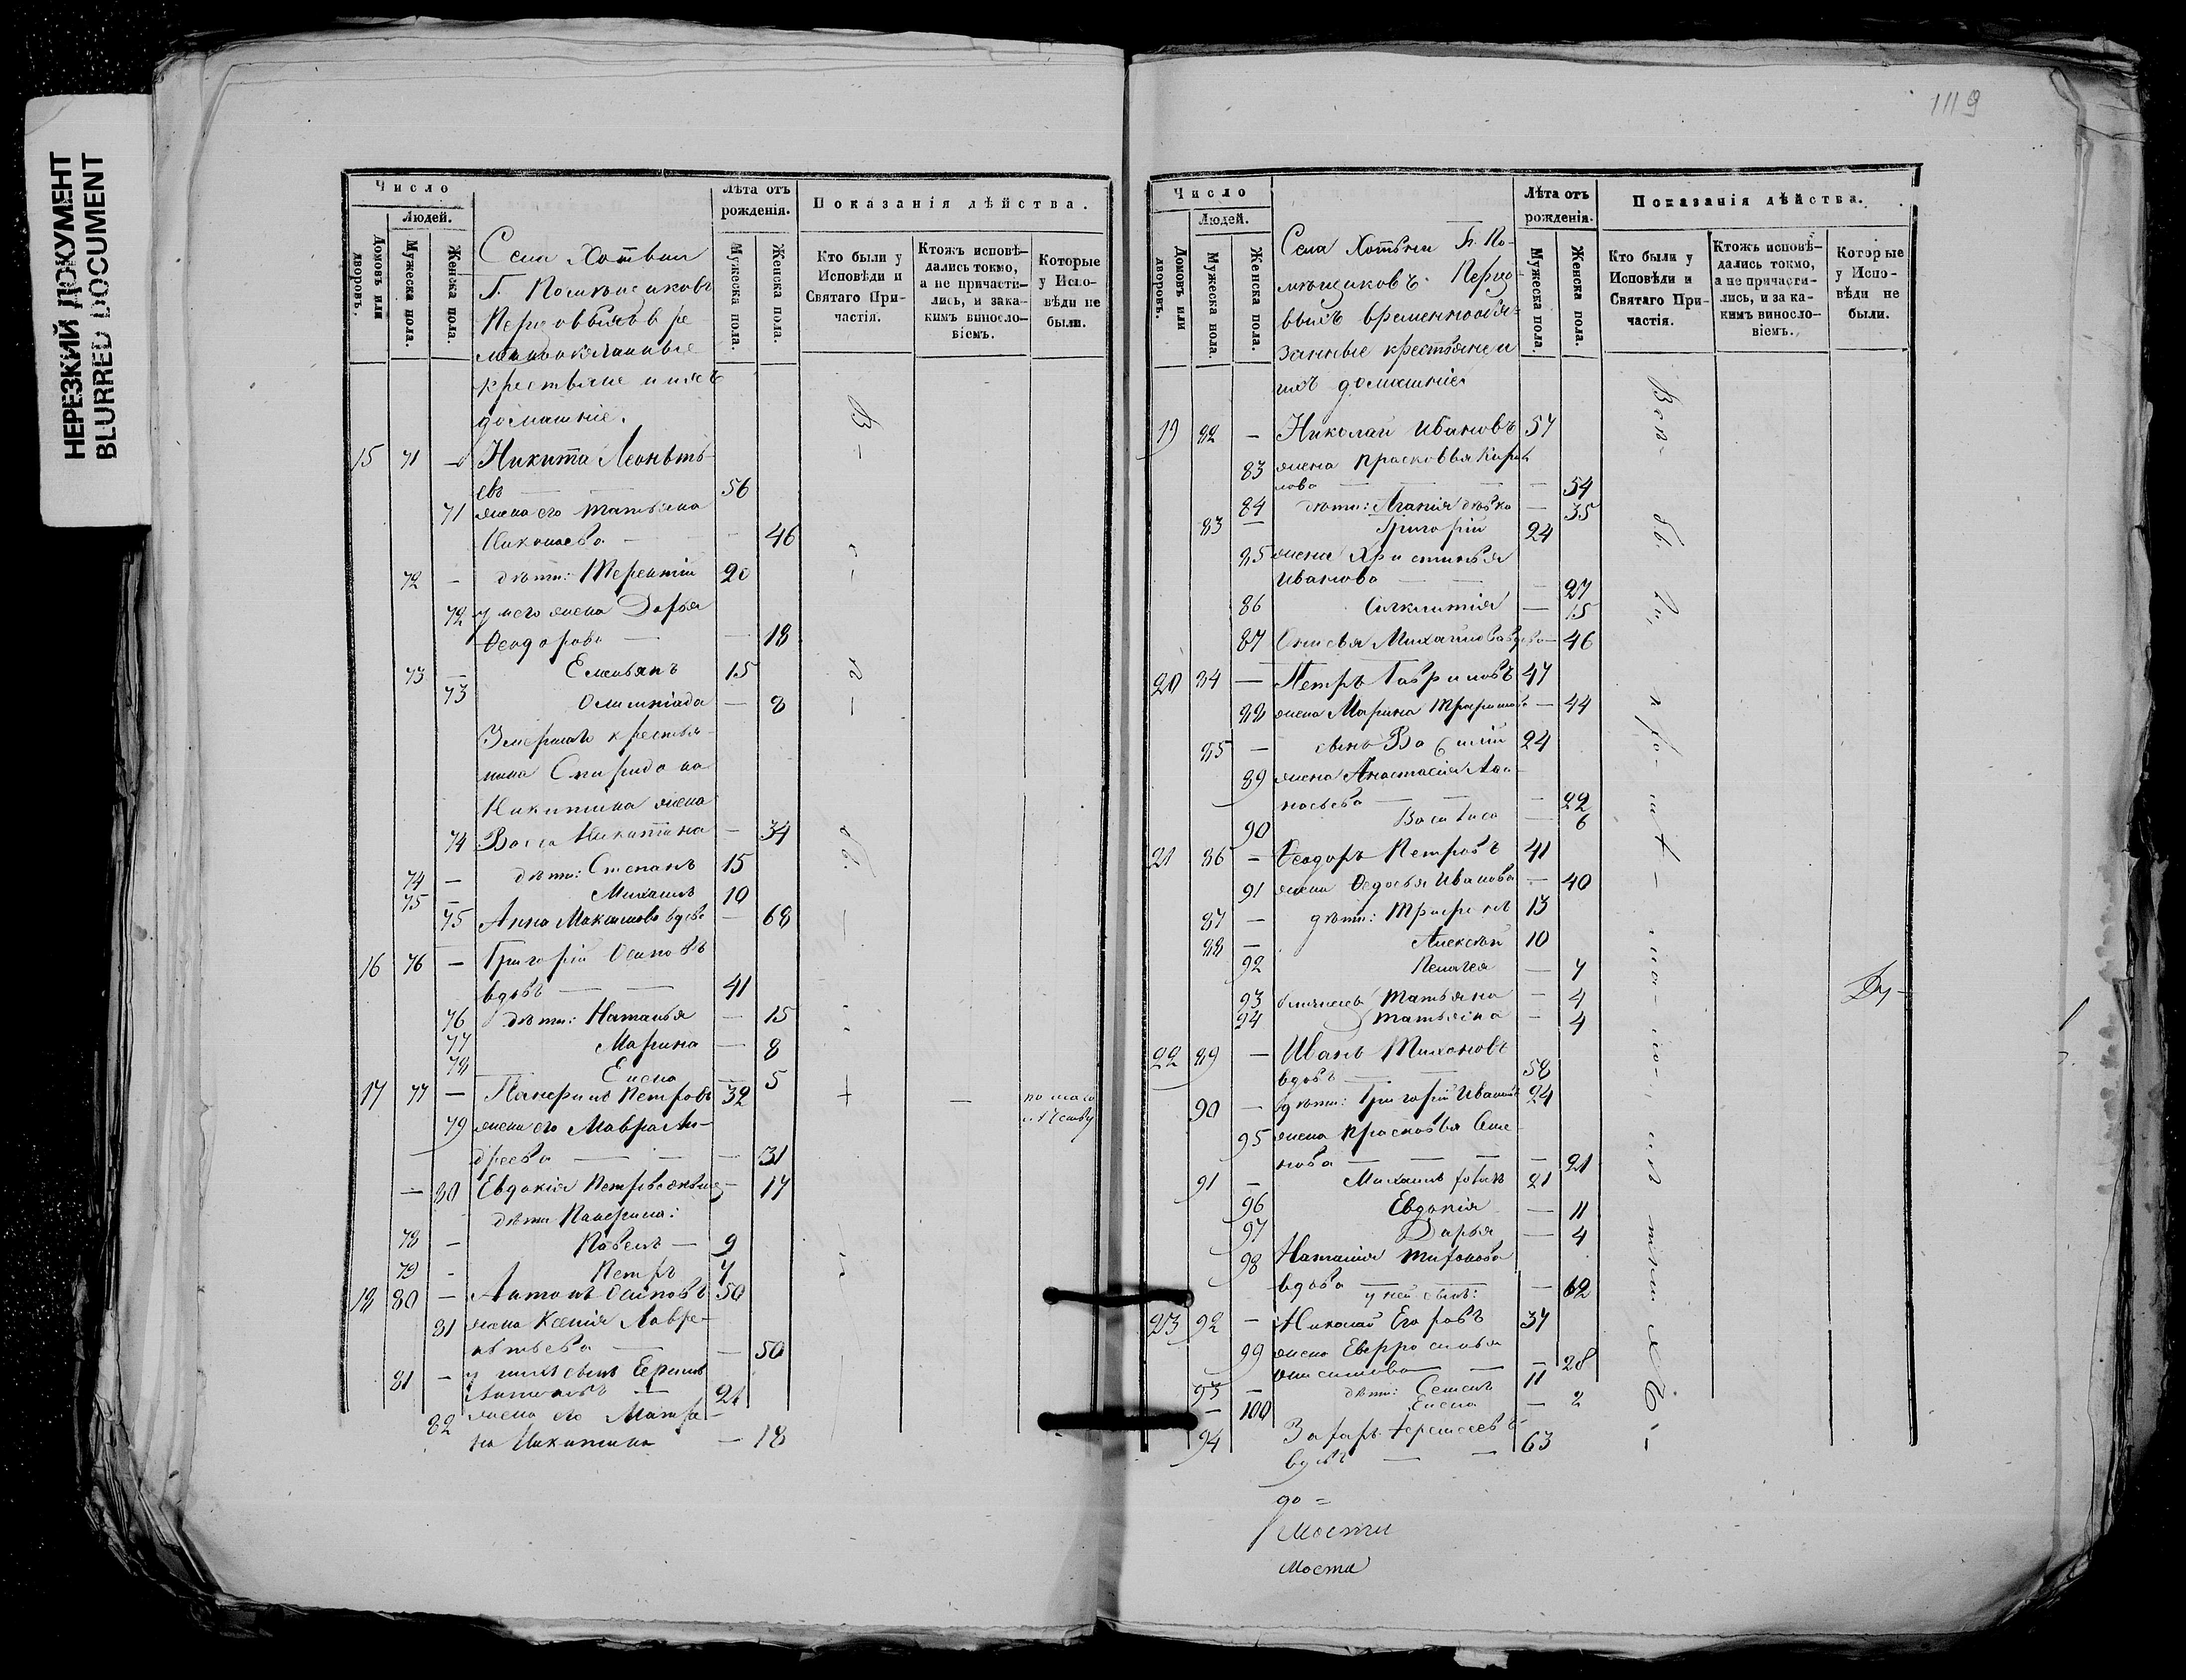 НЕРЕЗКИЙ ДОКУМЕНТ
BLURRED DOCUMENT
Число
Людей.
Домовъ или дворовъ.
Мужеска пола.
Женска пола.
Лѣта отъ рожденія.
Мужеска пола.
Женска пола.
Показанія дѣйства.
Кто были у Исповѣди и Святаго Причастія.
Ктожъ исповѣдались токмо, а не причастились, и за какимъ винословіемъ.
Которые у Исповѣди не были.
Села Хотѣни
Г. Помѣщиковъ
крестьяне и ихъ
домашніе.
15 71 – Никита Леонтьевъ 56
71 жена его Татьяна
Николаева 46
72 – дѣти: Терентій 20
72 у него жена Дарья
Ѳеодорова – 18
73 – Емельянъ 15
73 Олимпіада – 8
Умершаго крестьянина Спиридона
Никитина жена
74 Васса Никитина – 34
74 – дѣти: Степанъ 15
75 – Михаилъ 10
75 Анна Максимова вдова – 68
16 76 – Григорій Осиповъ
вдовъ 41
76 дѣти: Наталья – 15
77 Марина – 8
78 Елена – 5
17 77 – Панфилъ Петровъ 32
79 жена его Мавра Андреева – 31
– 80 Евдокія Петрова – 17
дѣти Панфила:
78 – Павелъ – 9
79 – Петръ 7
18 80 – Антонъ Осиповъ 50
81 жена Ксенія Лаврентьева – 50
81 – у нихъ сынъ Ефимъ
Антоновъ 21
82 жена его Матрена Никитина – 18
119
Число
Людей.
Домовъ или дворовъ.
Мужеска пола.
Женска пола.
Лѣта отъ рожденія.
Мужеска пола.
Женска пола.
Показанія дѣйства.
Кто были у Исповѣди и Святаго Причастія.
Ктожъ исповѣдались токмо, а не причастились, и за какимъ винословіемъ.
Которые у Исповѣди не были.
Села Хотѣни Г. Помѣщиковъ
временнообязанные крестьяне и
ихъ домашніе
19 82 – Николай Ивановъ 57
83 жена Прасковья Кирилова – 54
84 дѣти: Агапія дѣвка – 35
83 – Григорій 24
85 жена Христинья
Иванова – 27
86 – 15
87 Михайлова вдова – 46
20 84 – Петръ Гавриловъ 47
88 жена Марина – 44
85 – сынъ Василій 24
89 жена Анастасія
– 22
90 Василиса – 6
21 86 – Ѳеодоръ Петровъ 41
91 жена Ѳедосья Иванова – 40
87 – дѣти: 13
88 – Алексѣй 10
92 Пелагея – 7
93 близнецы Татьяна – 4
94 Татьяна – 4
22 89 – Иванъ Тихоновъ
вдовъ 58
90 – дѣти: Григорій Ивановъ 24
95 жена Прасковья
– 21
91 – Михаилъ 21
96 Евдокія – 11
97 Дарья – 4
98 Наталія
вдова – 62
у ней сынъ:
23 92 – Николай Егоровъ 37
99 жена Евфросинья
– 28
93 – дѣти: Семенъ 11
– 100 Елена – 2
94 Захаръ
вдовъ 63
до =
Мости
Моста